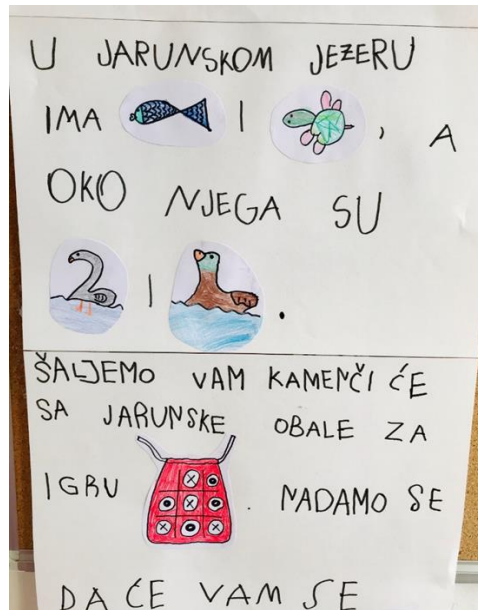 U JARUNSKOM JEZERU
IMA I , A
OKO NJEGA SU
I .
ŠALJEMO VAM KAMENČIĆE
SA JARUNSKE OBALE ZA
IGRU . NADAMO SE
DA ĆE VAM SE